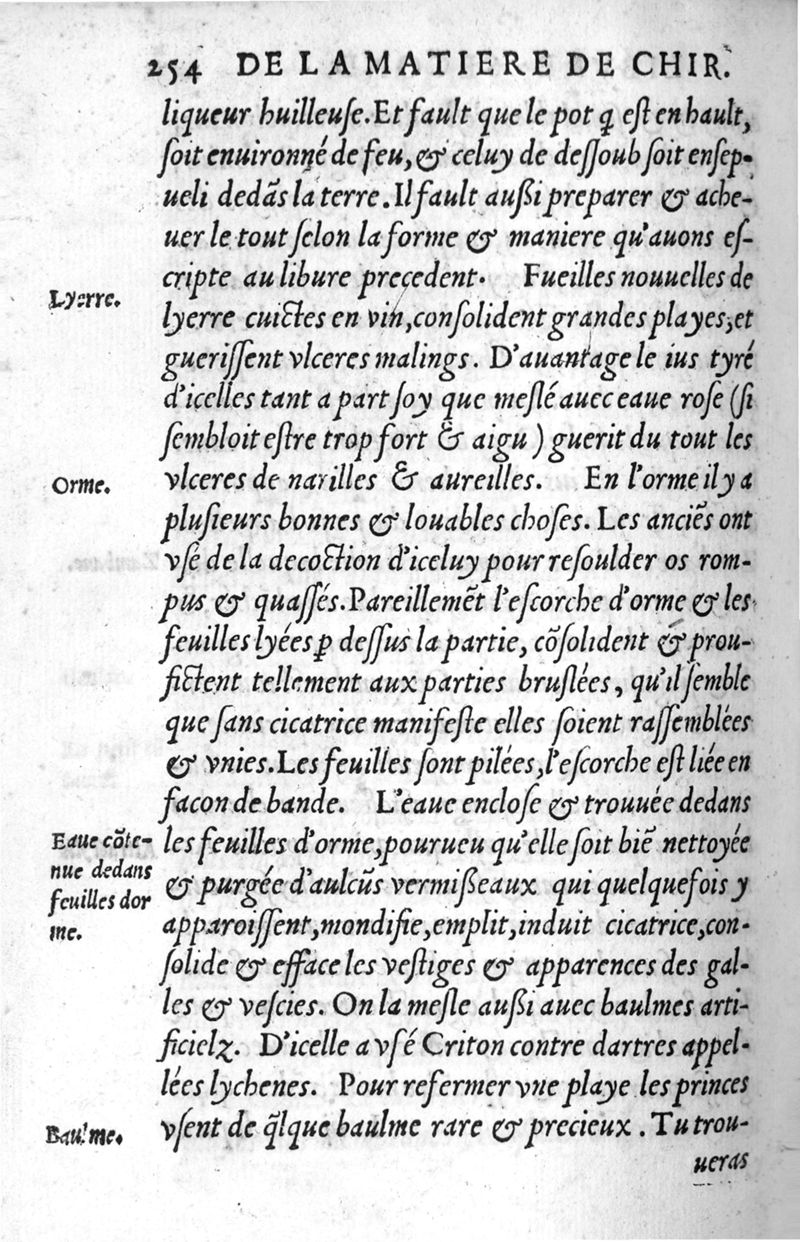 254 DE LA MATIERE DE CHIR.
liqueur huilleuſe. Et fault que le pot q̃ eſt en hault,
ſoit enuironné de feu, & celuy de deſſoub ſoit enſep-
ueli dedãs la terre. Il fault außi preparer & ache-
uer le tout ſelon la forme & maniere qu'auons eſ-
cripte au libure precedent. Fueilles nouuelles de
Lyerre.
lyerre cuictes en vin, conſolident grandes playes, et
gueriſſent vlceres malings. D'auantage le ius tyré
d'icelles tant a part ſoy que meſlé auec eaue roſe (ſi
ſembloit eſtre trop fort & aigu) guerit du tout les
Orme.
vlceres de narilles & aureilles. En l'orme il y a
pluſieurs bonnes & louables choſes. Les anciẽs ont
vſé de la decoction d'iceluy pour reſoulder os rom-
pus & quaſſés. Pareillemẽt l'eſcorche d'orme & les
feuilles lyées ꝑ deſſus la partie, cõſolident & prou-
fictent tellement aux parties bruſlées, qu'il ſemble
que ſans cicatrice manifeſte elles ſoient raſſemblées
& vnies. Les feuilles ſont pilées, l'eſcorche eſt liée en
facon de bande. L'eaue encloſe & trouuée dedans
Eaue cõte-
nue dedans
feuilles dor
me.
les feuilles d'orme, pourueu qu'elle ſoit biẽ nettoyée
& purgée d'aulcũs vermißeaux qui quelquefois y
apparoiſſent, mondifie, emplit, induit cicatrice, con-
ſolide & efface les veſtiges & apparences des gal-
les & veſcies. On la meſle außi auec baulmes arti-
ficielz. D'icelle a vſé Criton contre dartres appel-
lées lychenes. Pour refermer vne playe les princes
Baulme.
vſent de q̃lque baulme rare & precieux. Tu trou-
ueras